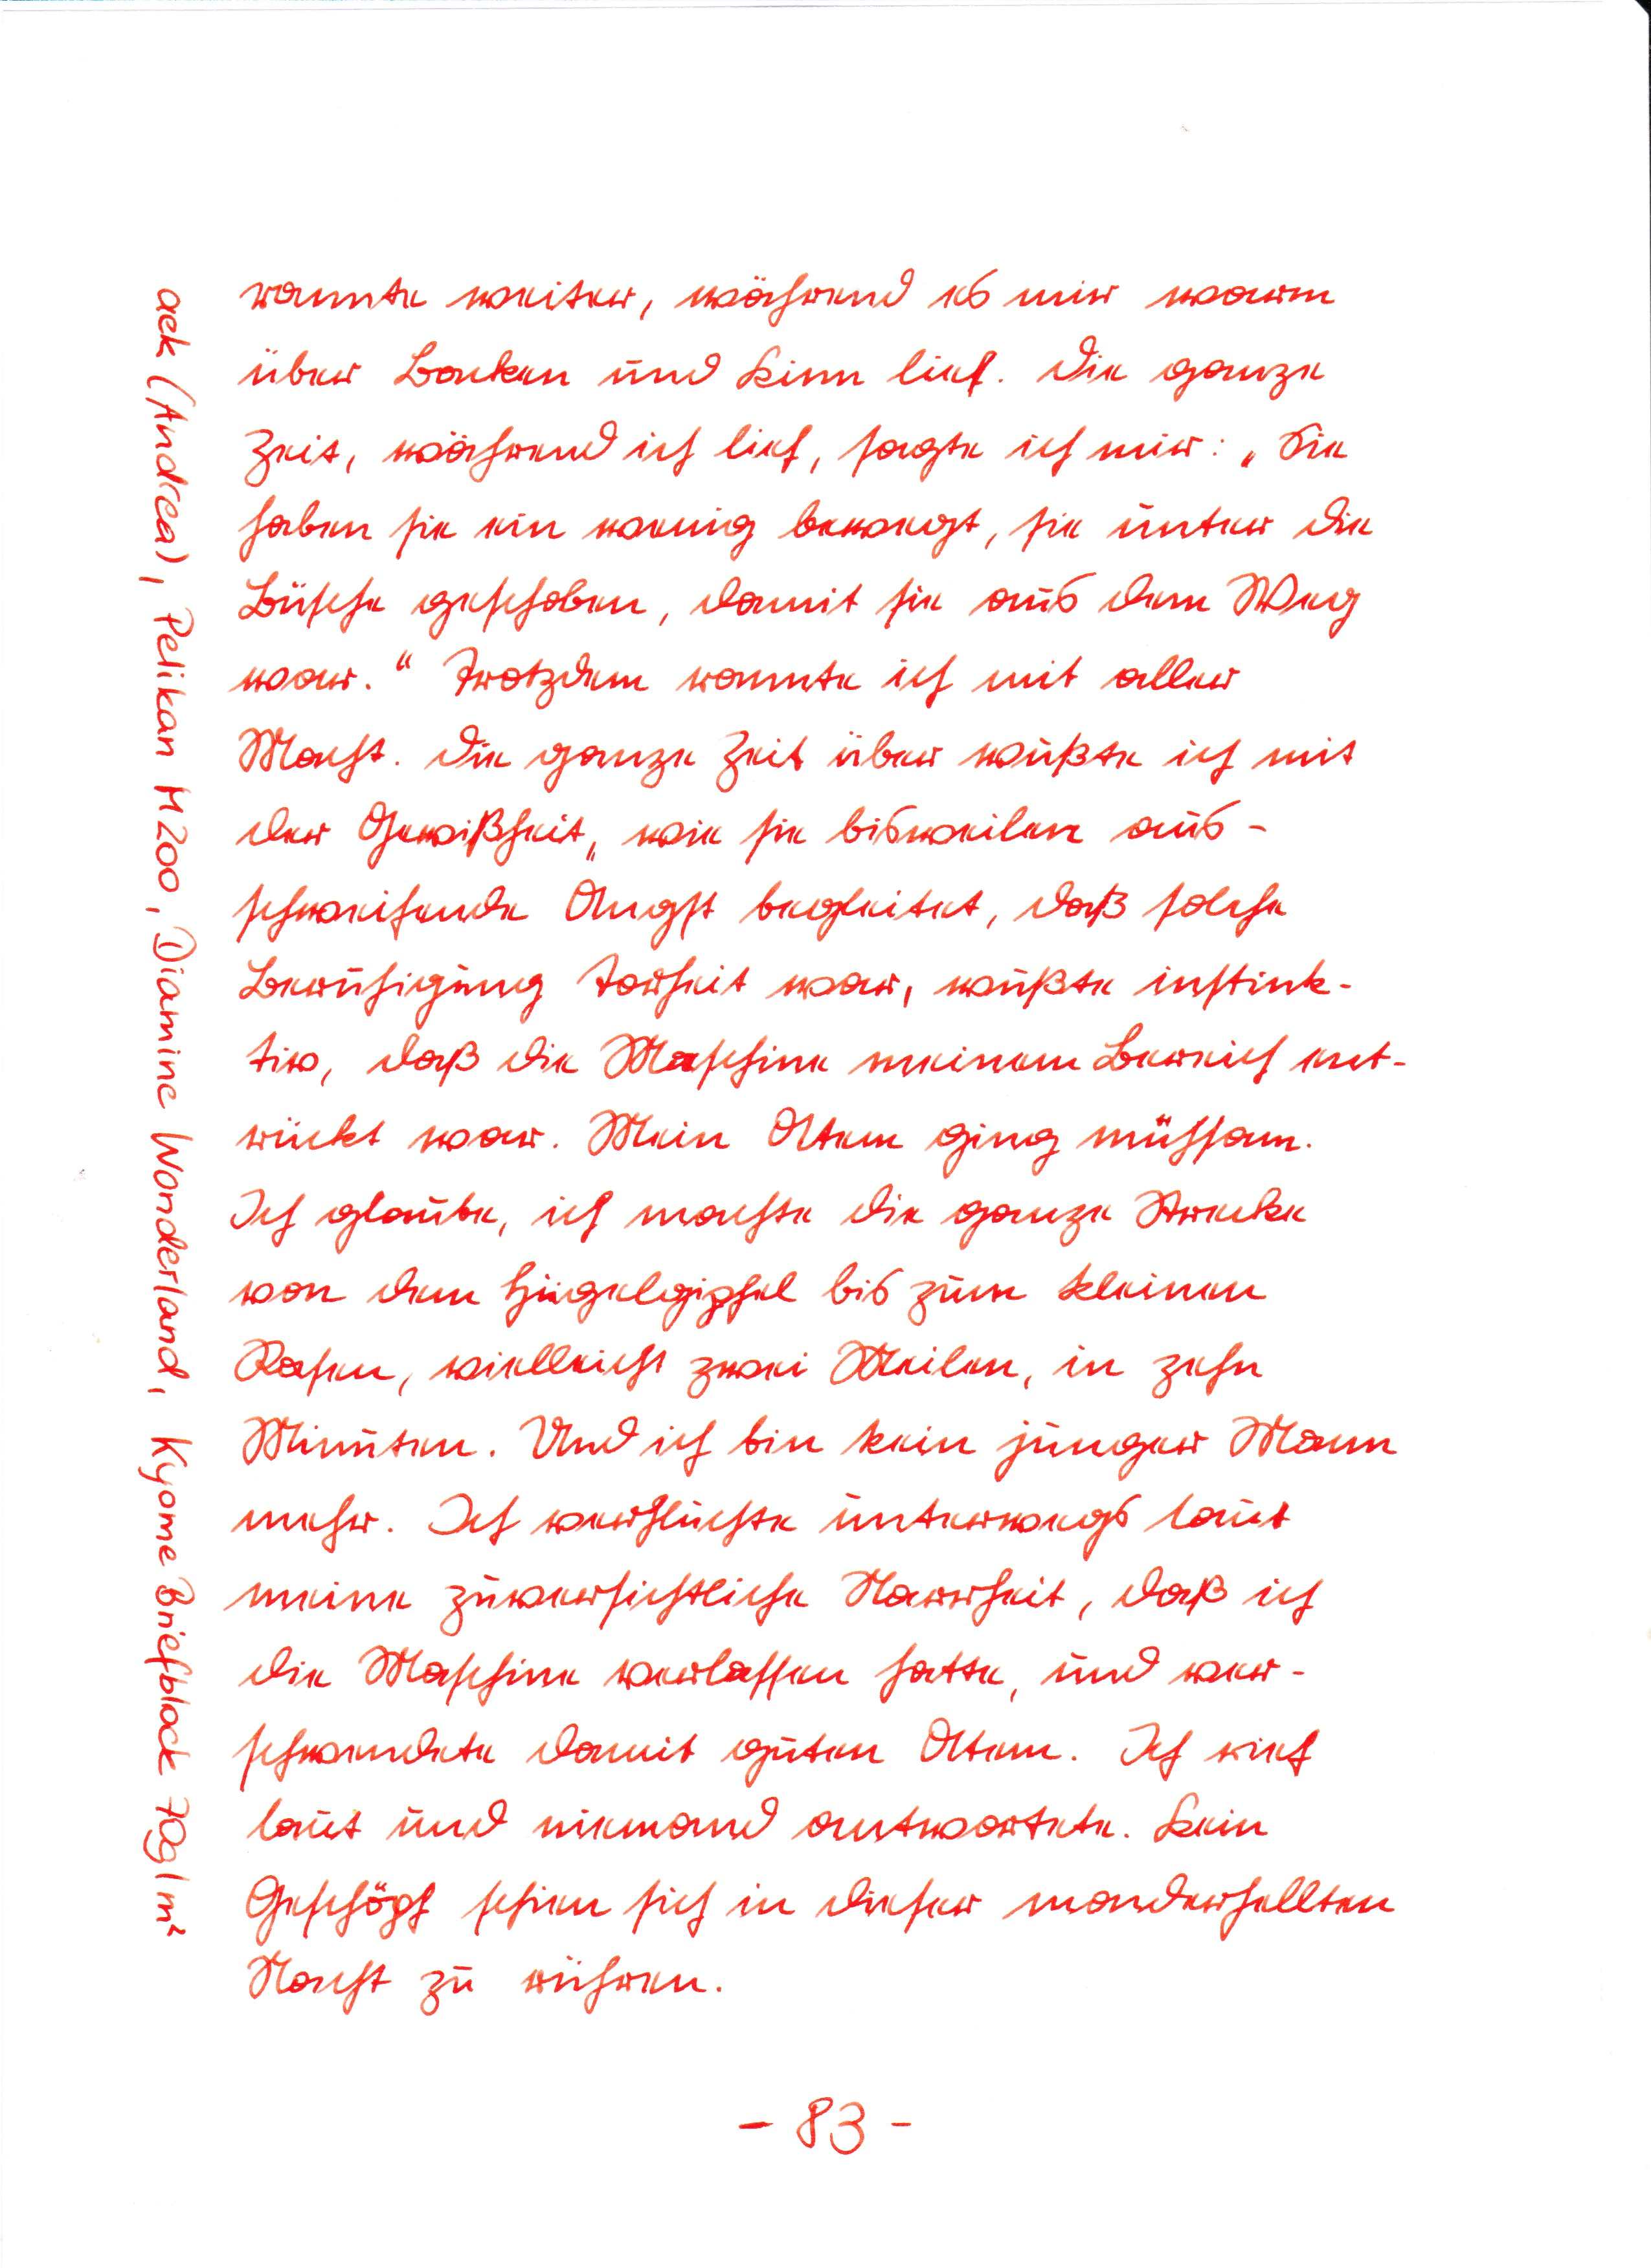 rannte weiter, während es mir warm
über Backen und Kinn lief. Die ganze
Zeit, während ich lief, sagte ich mir: „Sie
haben sie ein wenig bewegt, sie unter die
Büsche geschoben, damit sie aus dem Weg
war.“ Trotzdem rannte ich mit aller
Macht. Die ganze Zeit über wußte ich mit
der Gewißheit, wie sie bisweilen aus-
schweifende Angst begleitet, daß solche
Beruhigung Torheit war, wußte instink-
tiv, daß die Maschine meinem Bereich ent-
rückt war. Mein Atem ging mühsam.
Ich glaube, ich machte die ganze Strecke
von dem Hügelgipfel bis zum kleinen
Rasen, vielleicht zwei Meilen, in zehn
Minuten. Und ich bin kein junger Mann
mehr. Ich verfluchte unterwegs laut
meine zuversichtliche Narrheit, daß ich
die Maschine verlassen hatte, und ver-
schwendete damit guten Atem. Ich rief
laut und niemand antwortete. Kein
Geschöpf schien sich in dieser monderhellten
Nacht zu rühren.
- 83 -
aek (Andrea), Pelikan M200, Diamine Wonderland, Kyome Briefblock 70g/m²